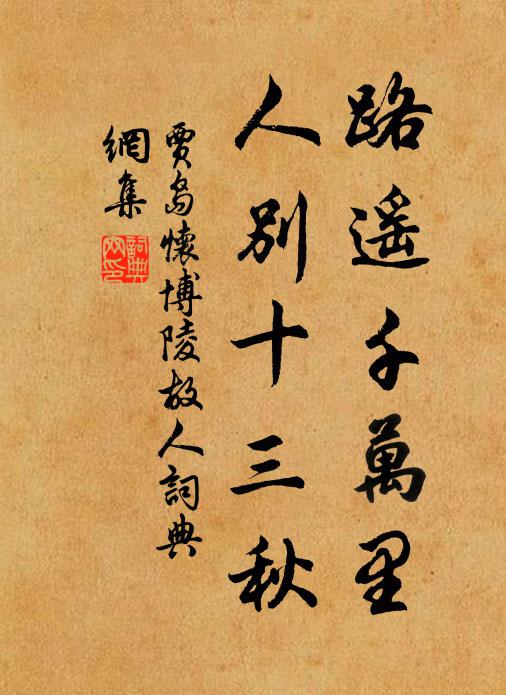 路遥千萬里
人別十三秋
賈島懷博陵故人詞典
網集
詞典
网印